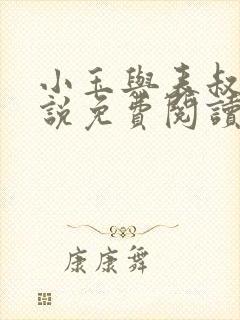 小玉與表叔
說免費閱讀
康康舞